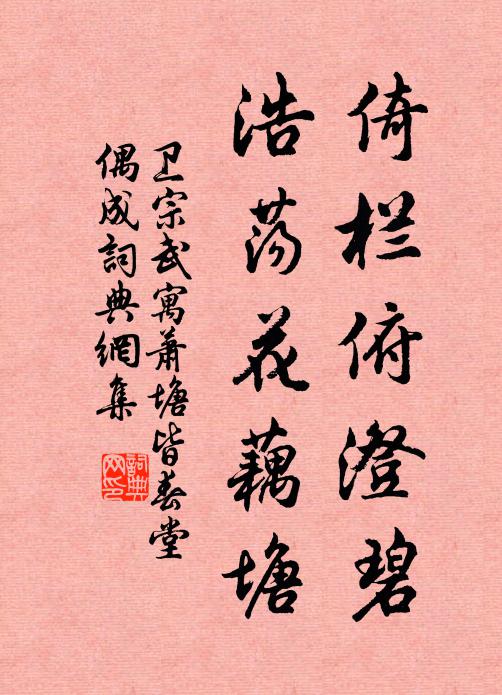 倚栏俯澄碧
浩荡花藕塘
卫宗武寓萧塘皆春堂
偶成詞典網集
詞典
网印